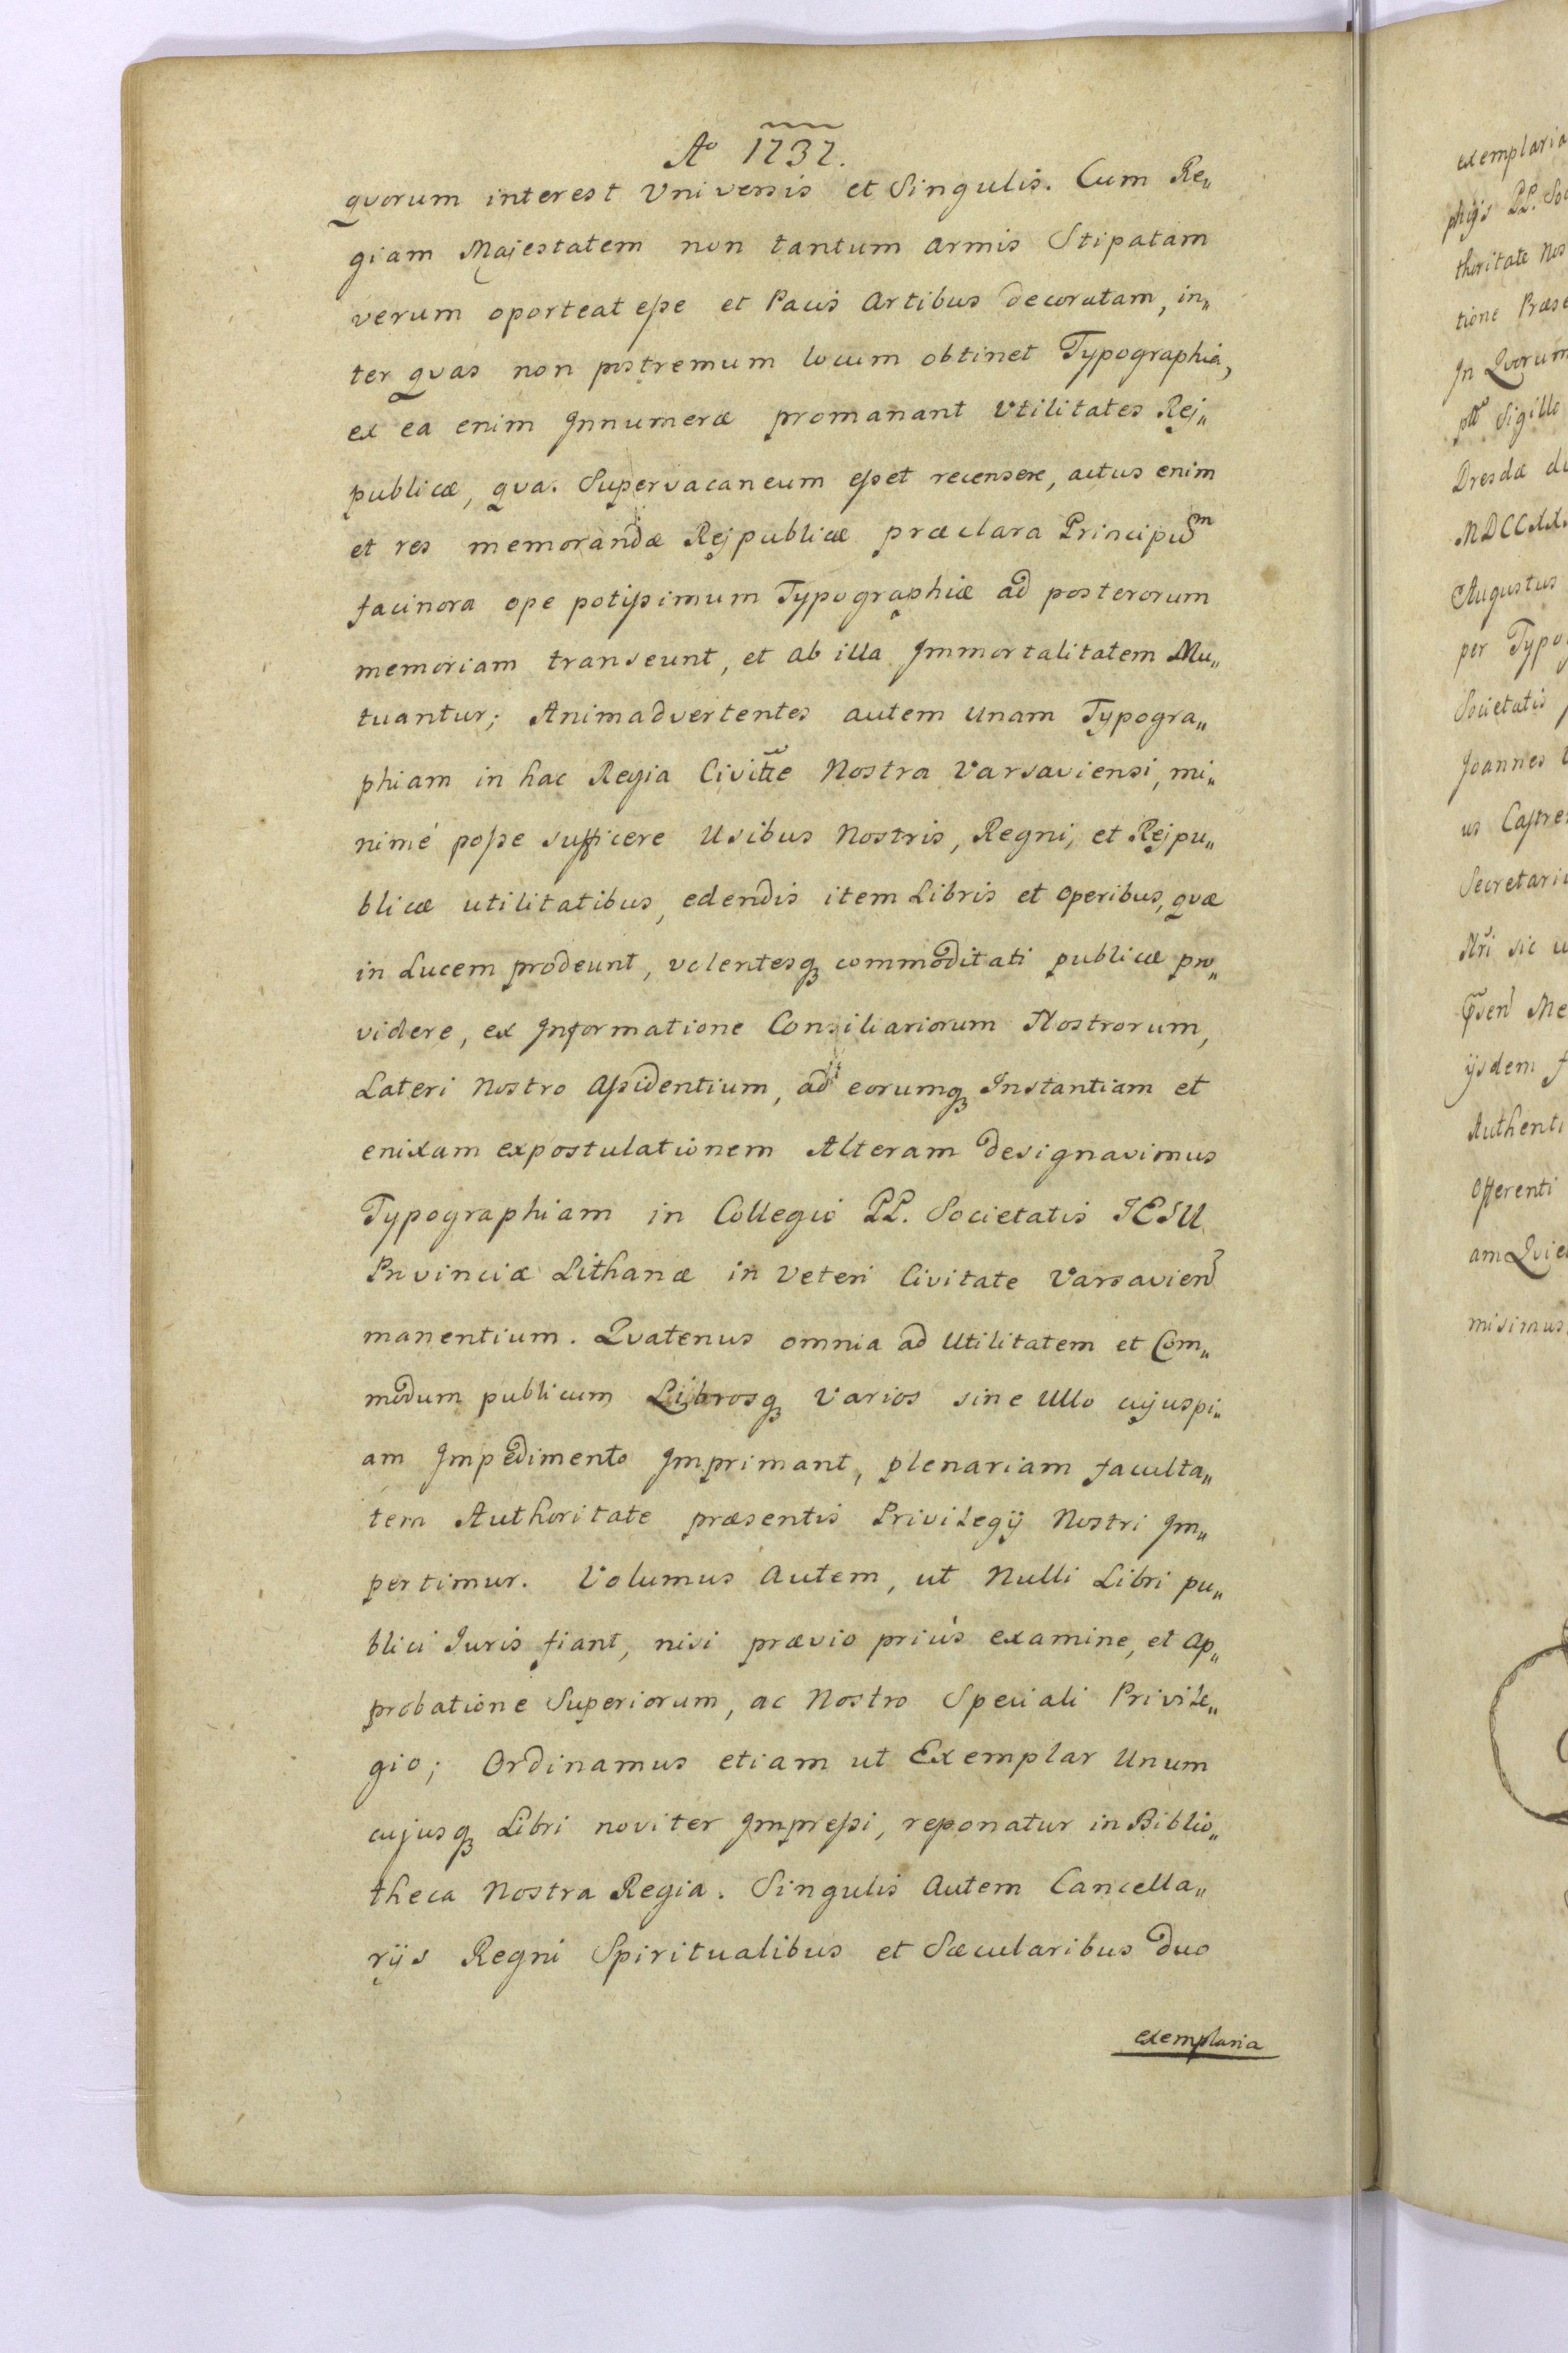 Aº 1737.
quorum interest Universis et Singulis. Cum Re„
giam Majestatem non tantum armis Stipatam
verum oporteat eſse et Pacis Artibus decoratam, in„
ter quas non postremum locum obtinet Typographia,
ex ea enim Innumeræ promanant Utilitates Rej„
publicæ, qua. Supervacaneum eſset recensere, actus enim
et res memorandæ Rejpublicæ præclara Principum
facinora ope potiſsimum Typographiæ ad posterorum
memoriam transeunt, et ab illa Immortalitatem Mu„
tuantur; Animadvertentes autem unam Typogra„
phiam in hac Regia Civitte Nostra Varsaviensi, mi„
nimé poſse sufficere Usibus Nostris, Regni, et Rejpu„
blicæ utilitatibus, edendis item Libris et operibus, quæ
in Lucem prodeunt, volentesq3 commoditati publicæ pro„
videre, ex Informatione Consiliariorum Nostrorum,
Lateri Nostro Aſsidentium, ad eorumq3 Instantiam et
enixam expostulationem Alteram designavimus
Typographiam in Collegio PP. Societatis IESU
Provinciæ Lithanæ in Veteri Civitate Varsavien
manentium. Quatenus omnia ad Utilitatem et Com„
modum publicum Librosq3 Varios sine Ullo cujuspi„
am Impedimento Imprimant, plenariam faculta„
tem Authoritate præsentis Privilegij Nostri Im„
pertimur. Volumus Autem, ut Nulli Libri pu„
blici Juris fiant, nisi prævio priús examine, et Ap„
probatione Superiorum, ac Nostro Speciali Privile„
gio; Ordinamus etiam ut Exemplar Unum
cujusq3 Libri noviter Impreſsi, reponatur in Biblio„
theca Nostra Regia. Singulis Autem Cancella„
rijs Regni Spiritualibus et Sæcularibus duo
exemplaria
exemplaria
phijs PP. Soc
thoritate Nos
tione Præse
In Quorum
Sigillo
Dresdæ
MDCCXXX
Augustus
per Typo
Societatis
Joannes
us Castre
Secretari
Nri sic
Me
ijsdem f
Authenti
Offerenti
am Qvie
misimus